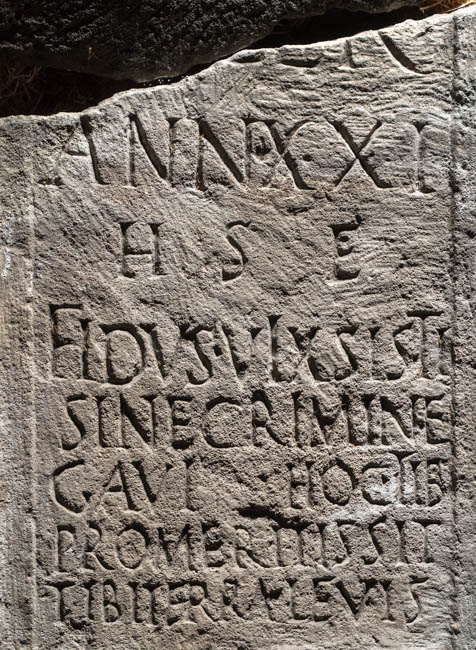 ANN XXI
H S E
FIDVS VIXSISTI
SINE CRIMINE
CAVI HOC TIB
PRO MERITIS SIT
TIBI TERRA LEVIS